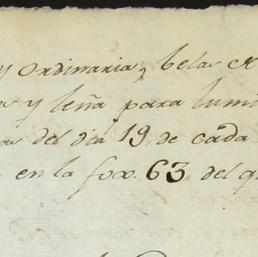 y ordinaria, bela
y leña para lumi
a del dia 19, de cada
en la fox. 63, del q